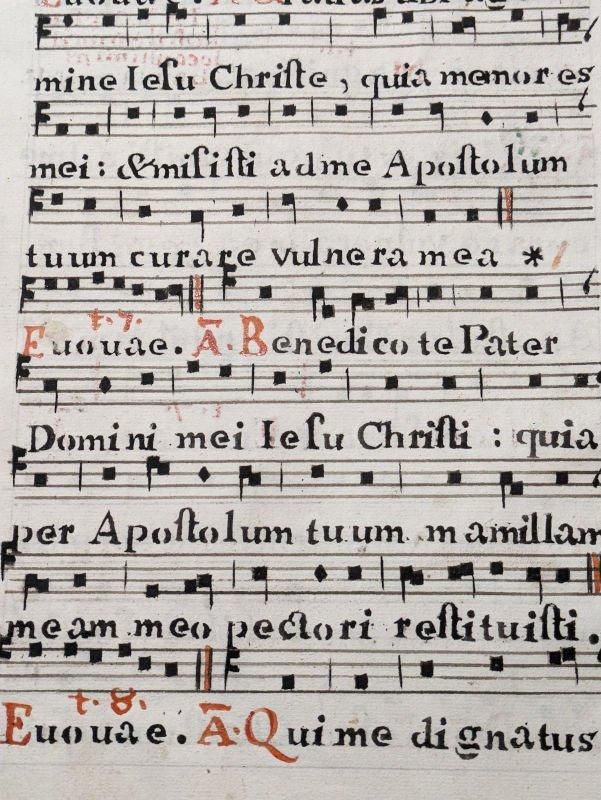 mine Iesu Christe, quia memor es
mei: & misisti ad me Apostolum
tuum curare vulnera mea *
t. 7.
Euouae. A. Benedico te Pater
Domini mei Iesu Christi: quia
per Apostolum tuum mamillam
meam meo pectori restituisti.
t. 8.
Euouae. A. Qui me dignatus